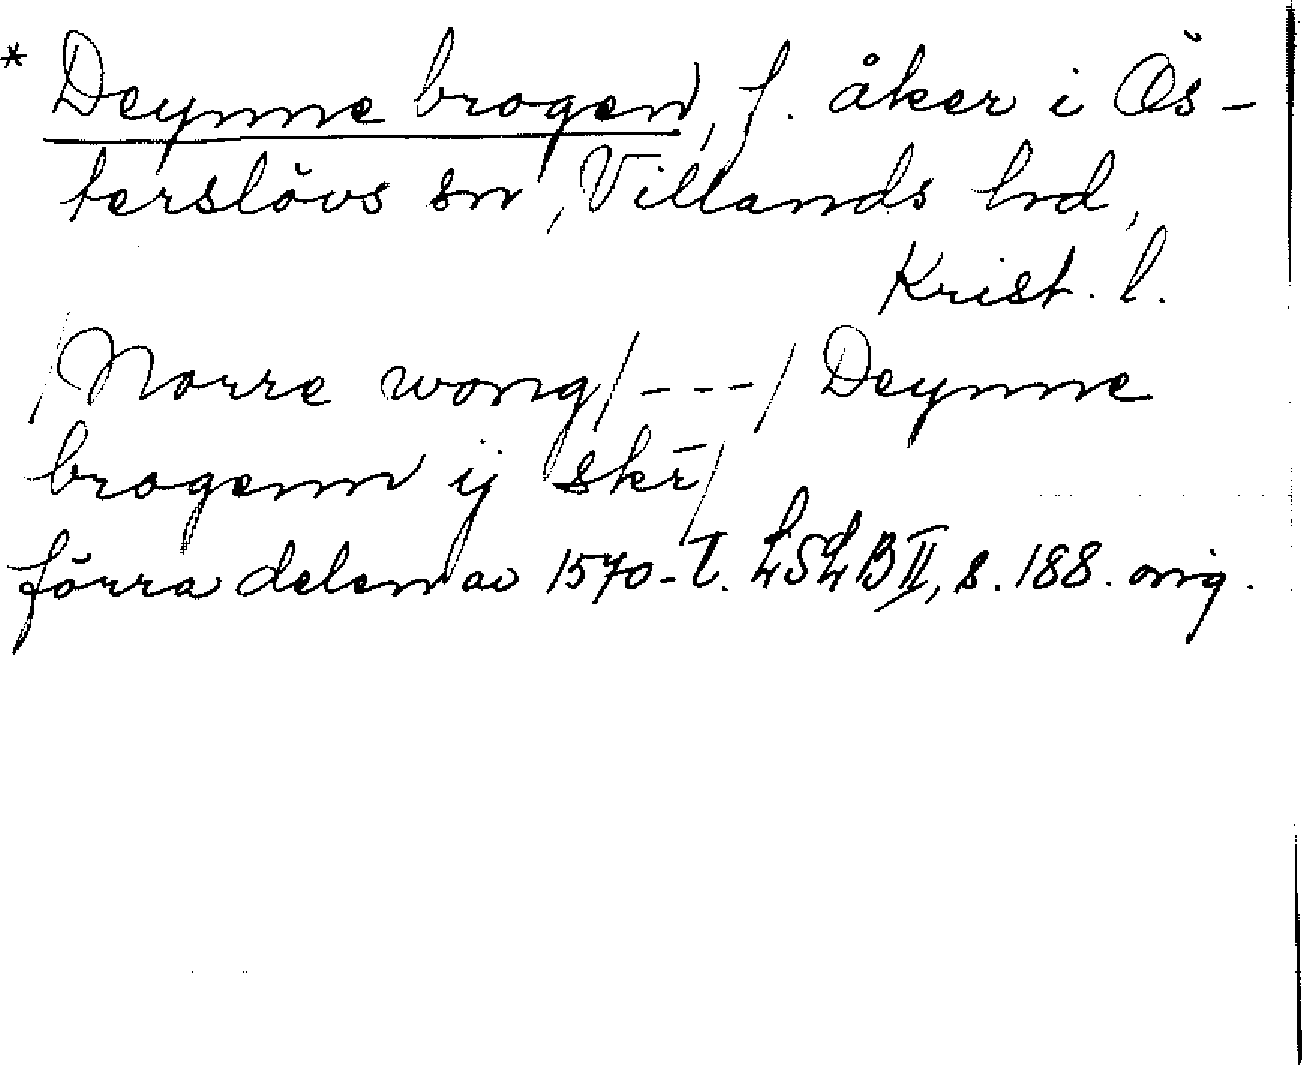 * Deynne brogen, f. åker i Ös-
terslövs sn, Villands hd,
Krist. l.
/Norre wong/---/Deynne
brogenn ij skr̄/
förra delen av 1570-t. LSLB II, s. 188. orig.